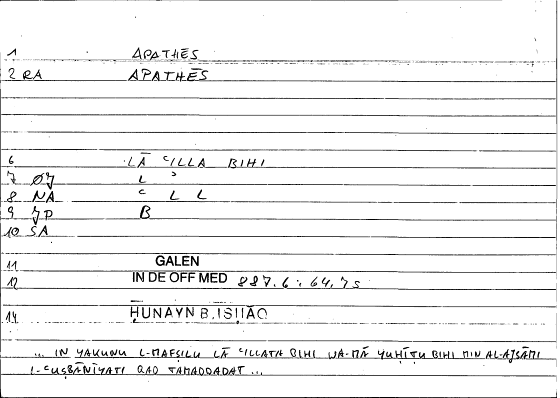 1 APATHĒS
2 RA APATHĒS
6 LĀ ʿILLA BIHI
7 ØJ L ʾ
8 NA ʿ L L
9 JP B
10 SA
11 GALEN
12 IN DE OFF MED 887.6 : 64.7s
14 ḤUNAYN B. ISḤĀQ
... IN YAKUNU L-MAFṢILU LĀ ʿILLATA BIHI WA-MĀ YUḤĪṬU BIHI MIN AL-AJSĀMI
L-ʿUṢBĀNĪYATI QAD TAMADDADAT ...